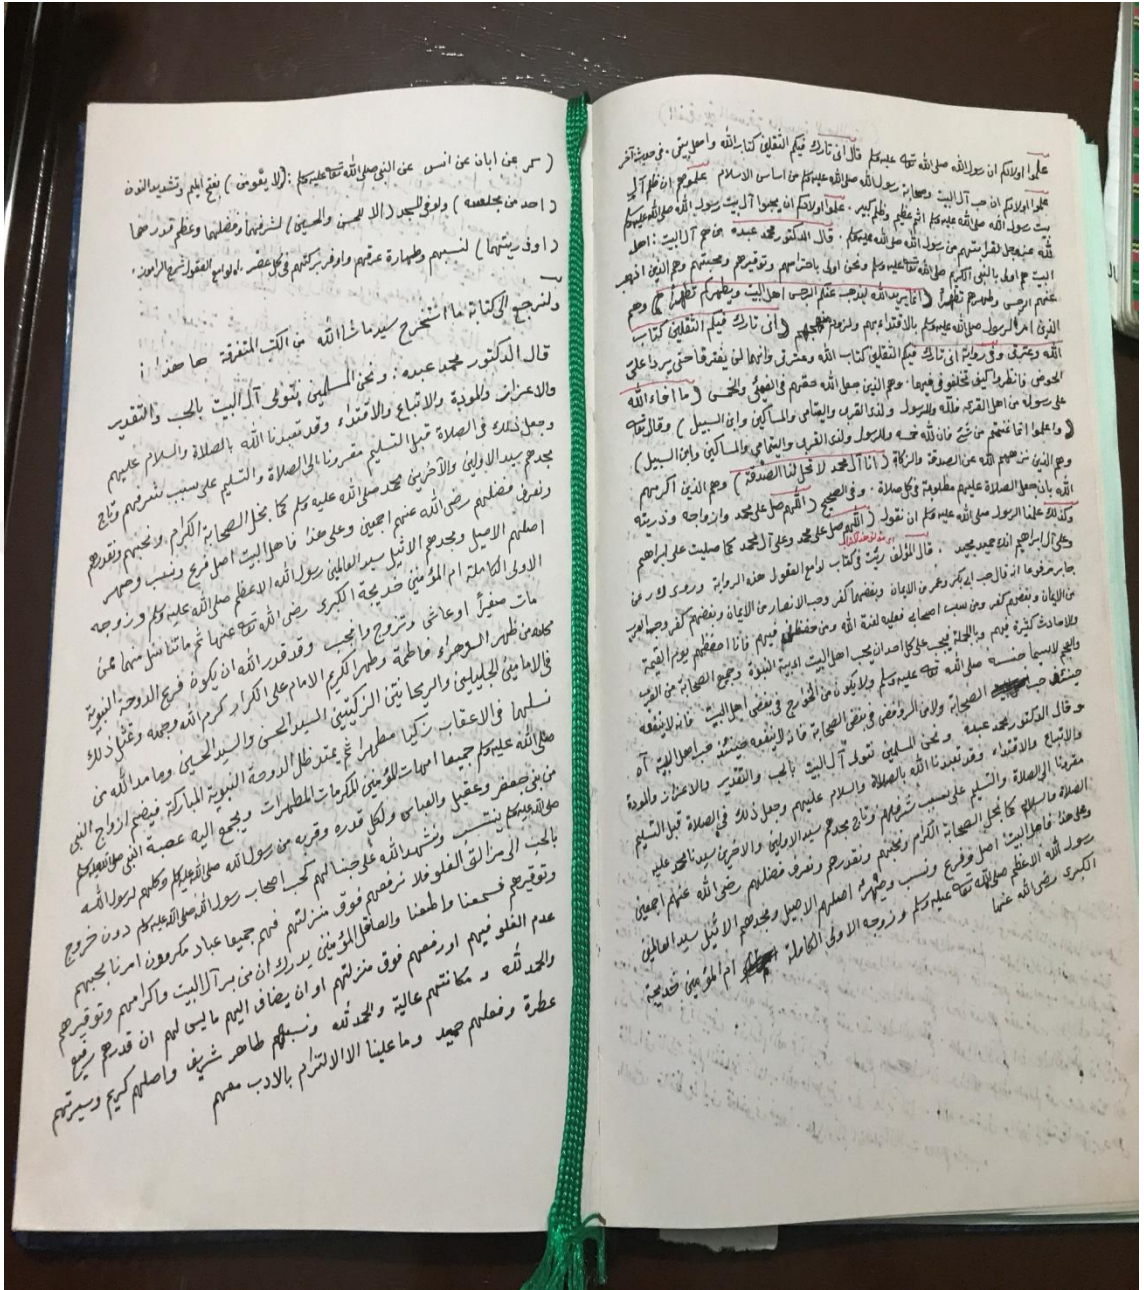 علموا اولادكم ان رسول الله صلى الله تعه عليه وسلم قال انى تارك فيكم الثقلين كتاب الله واهل بيتى . فى حديث آخر
علموا اولادكم ان حب آل البيت وصحابة رسول الله صلى الله عليه وسلم من اساس الاسلام علموهم ان ظلم آل
بيت رسول الله صلى الله عليه وسلم اثم عظيم وظلم كبير . علموا اولادكم ان يحبوا آل بيت رسول الله صلى الله عليه وسلم
لله عز وجل لقرابتهم من رسول الله صلى الله عليه وسلم . قال الدكتور محمد عبده من هم آل البيت : اهل
البيت هم اولى بالنبى الكريم صلى الله تعه عليه وسلم ونحن اولى باحترامهم وتوقيرهم ومحبتهم وهم الذين اذهب
عنهم الرجس وطهرهم تطهيرا (انما يريد الله ليذهب عنكم الرجس اهل البيت ويطهركم تطهيرا) وهم
الذين امر الرسول صلى الله عليه وسلم بالاقتداء بهم ولزوم منهجهم (انى تارك فيكم الثقلين كتاب
الله وعترتى وفى رواية انى تارك فيكم الثقلين كتاب الله وعترتى وانهما لن يفترقا حتى يردا على
الحوض فانظروا كيف تخلفونى فيهما . وهم الذين جعل الله حقهم فى الفيئ والخمس (ما افاء الله
على رسوله من اهل القرى فلله وللرسول ولذى القربى واليتامى والمساكين وابن السبيل) وقال تعه
(واعلموا انما غنمتم من شئ فان لله خمسه وللرسول ولذى القربى واليتامى والمساكين وابن السبيل)
وهم الذين نزههم الله عن الصدقة والزكاة (انا آل محمد لا تحل لنا الصدقة) وهم الذين اكرمهم
الله بان جعل الصلاة عليهم مطلوبة فى كل صلاة . وفى الصحيح (اللهم صل على محمد وازواجه وذريته
وكذلك علمنا الرسول صلى الله عليه وسلم ان نقول (اللهم صل على محمد وعلى آل محمد كما صليت على ابراهيم
وعلى آل ابراهيم انك حميد مجيد . قال المؤلف رئيت فى كتاب لوامع العقول هذه الرواية وروى عن
جابر مرفوعا انه قال حب ابى بكر وعمر من الايمان وبغضهما كفر وحب الانصار من الايمان وبغضهم كفر وحب العرب
من الايمان وبغضهم كفر ومن سب اصحابى فعليه لعنة الله ومن حفظنى فيهم فانا احفظهم يوم القيمة
والاحاديث كثيرة فيهم وبالجملة فيجب على كل احد ان يحب اهل البيت النبوة وجمع الصحابة من العرب
والعجم لاسيما جنسه صلى الله تعه عليه وسلم ولا يكون من الخوارج فى بغض اهل البيت فانه لا ينفعه
حينئذ حب الصحابة ولا من الروفض فى بغض الصحابة فانه لا ينفعه حينئذ حب اهل البيت آه
وقال الدكتور محمد عبده ونحن المسلمين نتولى آل البيت بالحب والتقدير والاعزاز والمودة
والاتباع والاقتداء وقد تعبدنا الله بالصلاة والسلام عليهم وجعل ذلك فى الصلاة قبل التسليم
مقرونا الى الصلاة والتسليم على سبب شرفهم وتاج مجدهم سيد الاولين والاخرين سيدنا محمد عليه
الصلاة والسلام كما نجل الصحابة الكرام ونحبهم ونقدرهم ونعرف فضلهم رضى الله عنهم اجمعين
وعلى هذا فاهل البيت اصل وفرع ونسب وصهر اصلهم الاصيل ومجدهم الاثيل سيد العالمين
رسول الله الاعظم صلى الله تعه عليه وسلم وزوجه الاولى الكاملة ام المؤمنين خديجة
الكبرى رضى الله عنها
(سمر عن ابان عن انس عن النبى صلى الله تعه عليه وسلم : (لا يقومن) بفتح الميم وتشديد النون
(احد من مجلسه) ولو فى المسجد (الا للحسن والحسين) لشرفهما وفضلهما وعظم قدرهما
(او ذريتهما) لنسبهم وطهارة عرقهم واوفر بركتهم فى كل عصر . اه لوامع العقول شرح الراموز .
ولنرجع الى كتابة ما استخرج سيد ماشاالله من الكتب المتفرقة ها هذا :
قال الدكتور محمد عبده : ونحن المسلمين نتولى آل البيت بالحب والتقدير
والاعزاز والمودة والاتباع والاقتداء وقد تعبدنا الله بالصلاة والسلام عليهم
وجعل ذلك فى الصلاة قبل التسليم مقرونا الى الصلاة والتسليم على سبب شرفهم وتاج
مجدهم سيد الاولين والآخرين محمد صلى الله عليه وسلم كما نجل الصحابة الكرام ونحبهم ونقدرهم
ونعرف فضلهم رضى الله عنهم اجمعين وعلى هذا فاهل البيت اصل فرع ونسب وصهر
اصلهم الاصيل ومجدهم الاثيل سيد العالمين رسول الله الاعظم صلى الله عليه وسلم وزوجه
الاولى الكاملة ام المؤمنين خديجة الكبرى رضى الله تعه عنها ثم ما تناسل منهما ممن
مات صغيرا او عاش وتزوج وانجب وقد قدر الله ان يكون فرع الدوحة النبوية
كله من ظهر الزهراء فاطمة وظهر الكريم الامام على الكرار كرم الله وجهه وتمثل ذلك
فى الامامين الجليلين والريحانتين الزكيتين السيد الحسن والسيد الحسين وما مد الله من
نسلهما فى الاعقاب زكيا مطهرا ثم يمتد ظل الدوحة النبوية المباركة فيضم ازواج النبى
صلى الله عليه وسلم جميعا امهات المؤمنين المكرمات المطهرات ويجمع اليه عصبة النبى صلى الله عليه وسلم
من بنى جعفر وعقيل والعباس ولكل قدره وقربه من رسول الله صلى الله عليه وسلم وكلهم لرسول الله
صلى الله عليه وسلم ينتسب ونشهد الله على حبنا لهم كحب اصحاب رسول الله صلى الله عليه وسلم دون خروج
بالحب الى مزالق الغلو فلا نرفعهم فوق منزلتهم فهم جميعا عباد مكرمون امرنا بحبهم
وتوقيرهم فسمعنا واطعنا والعاقل المؤمنين يدرك ان من بر آل البيت واكرامهم وتوقيرهم
عدم الغلو فيهم او رفعهم فوق منزلتهم او ان يضاف اليهم ما ليس لهم ان قدرهم رفيع
والحمد لله ومكانتهم عالية والحمد لله ونسبهم طاهر شريف واصلهم كريم وسيرتهم
عطرة وفعلهم حميد وما علينا الا الالتزام بالادب معهم